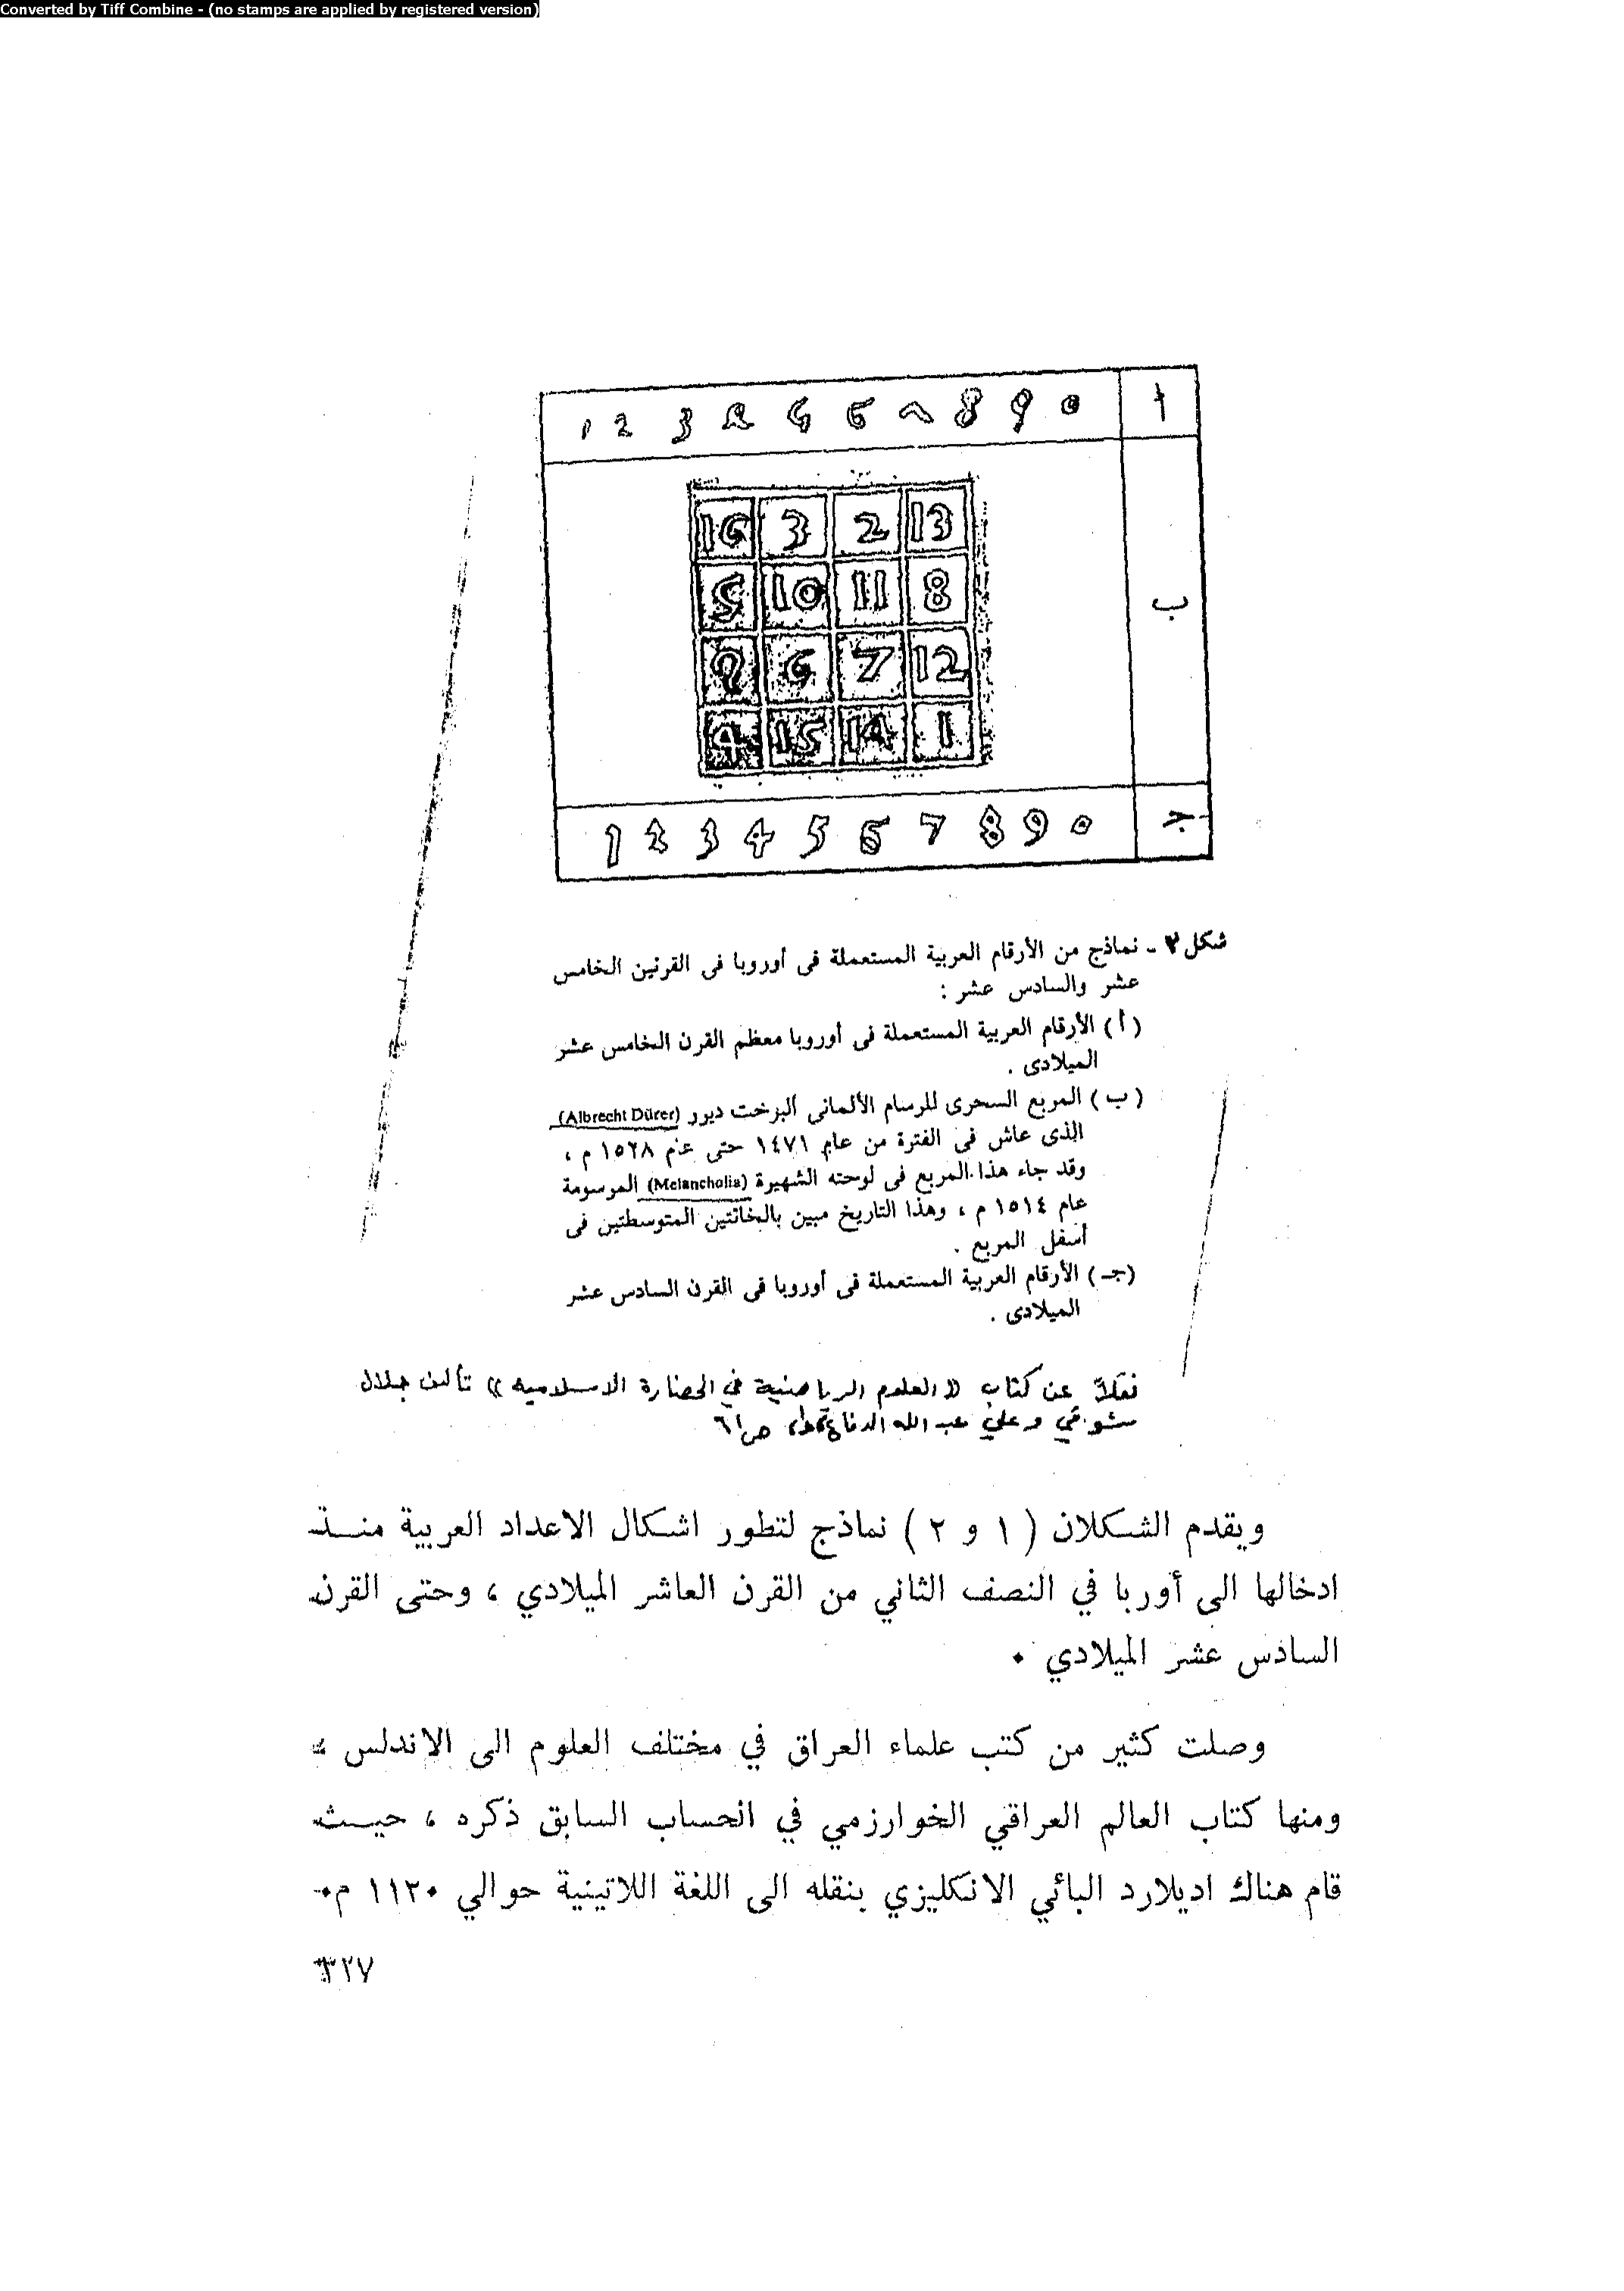 Converted by Tiff Combine - (no stamps are applied by registered version)
1 2 3 4 5 6 7 8 9 0 أ
16 3 2 13
5 10 11 8
ب
9 6 7 12
4 15 14 1
1 2 3 4 5 6 7 8 9 0 جـ
شكل ٢ ـ نماذج من الأرقام العربية المستعملة فى أوروبا فى القرنين الخامس
عشر والسادس عشر :
(أ) الأرقام العربية المستعملة فى أوروبا معظم القرن الخامس عشر
الميلادى .
(ب) المربع السحرى للرسام الألمانى ألبرخت ديورر (Albrecht Dürer)
الذى عاش فى الفترة من عام ١٤٧١ حتى عام ١٥٢٨ م ،
وقد جاء هذا المربع فى لوحته الشهيرة (Melancholia) الموسومة
عام ١٥١٤ م ، وهذا التاريخ مبين بالخانتين المتوسطتين فى
أسفل المربع .
(جـ) الأرقام العربية المستعملة فى أوروبا فى القرن السادس عشر
الميلادى .
نقلاً عن كتاب « العلوم الرياضية في الحضارة الاسلامية » تأليف جلال
شوقي وعلي عبد الله الدفاع ص ٦١
ويقدم الشكلان ( ١ و ٢ ) نماذج لتطور اشكال الاعداد العربية منذ
ادخالها الى أوربا في النصف الثاني من القرن العاشر الميلادي ، وحتى القرن
السادس عشر الميلادي ٠
وصلت كثير من كتب علماء العراق في مختلف العلوم الى الاندلس ،
ومنها كتاب العالم العراقي الخوارزمي في الحساب السابق ذكره ، حيث
قام هناك اديلارد الباثي الانكليزي بنقله الى اللغة اللاتينية حوالي ١١٢٠ م٠
٣٢٧